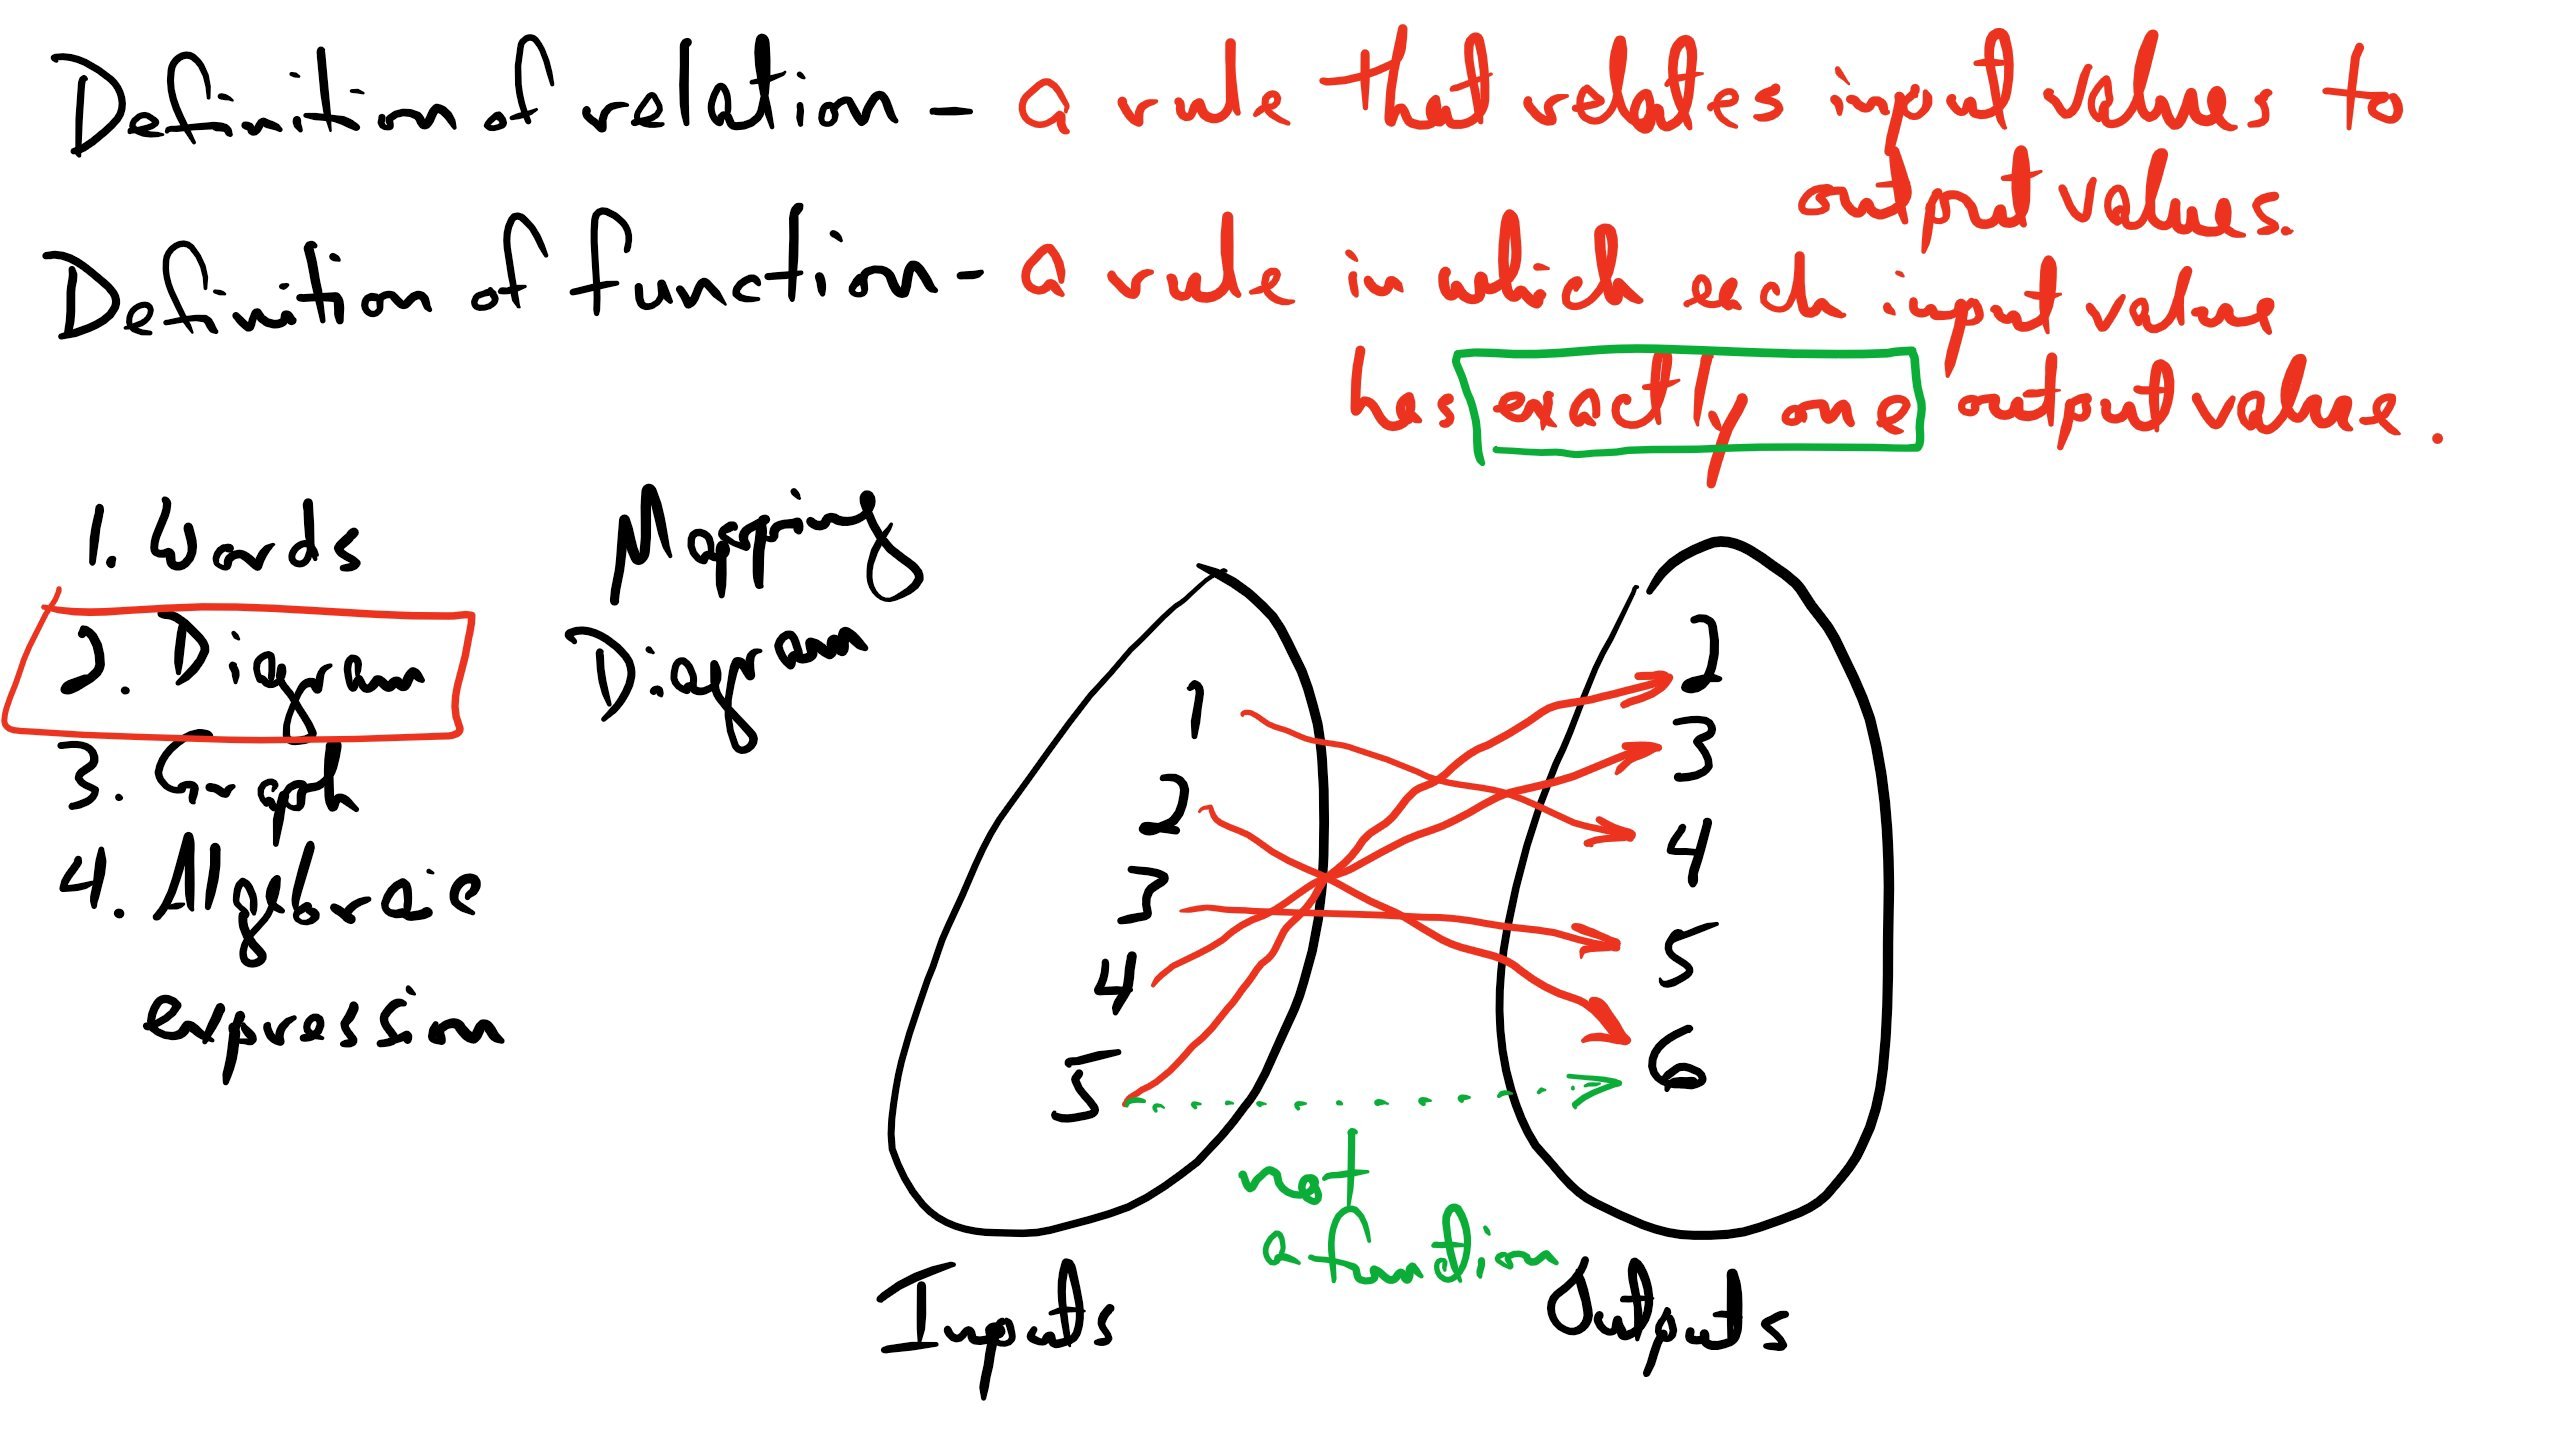 Definition of relation - a rule that relates input values to
output values.
Definition of function - a rule in which each input value
has exactly one output value.
1. Words
2. Diagram
3. Graph
4. Algebraic
expression
Mapping
Diagram
1
2
3
4
5
2
3
4
5
6
not
a function
Inputs
Outputs